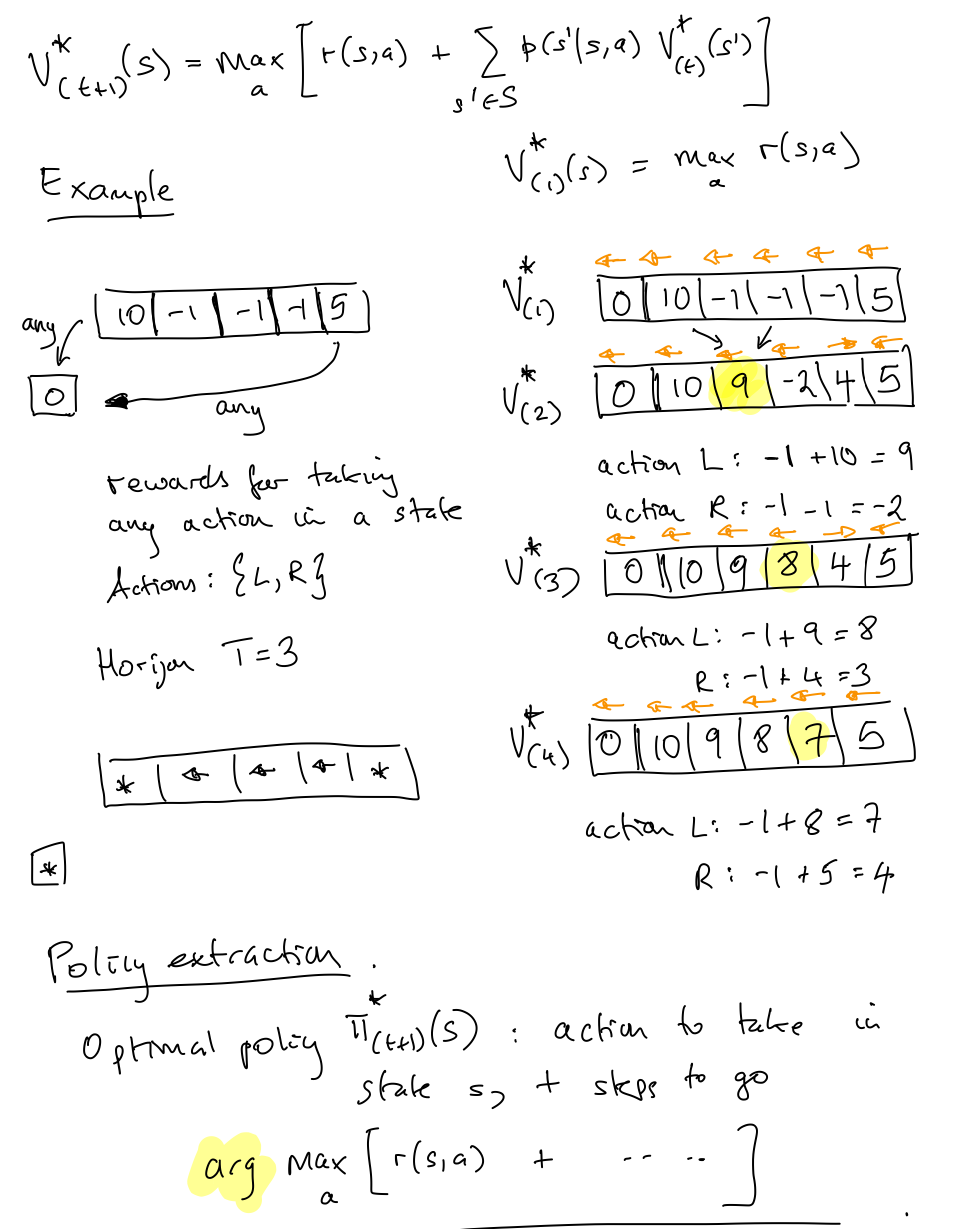 V*(t+1)(s) = max_a [ r(s,a) + Σ_{s'∈S} p(s'|s,a) V*(t)(s') ]
V*(1)(s) = max_a r(s,a)
Example
10 | -1 | -1 | -1 | 5
any
0
any
rewards for taking
any action in a state
Actions: {L, R}
Horizon T=3
* | ← | ← | ← | *
*
← ← ← ← ← ←
V*(1) 0 | 10 | -1 | -1 | -1 | 5
← ← ← ← → ←
V*(2) 0 | 10 | 9 | -2 | 4 | 5
action L: -1 +10 = 9
action R: -1 -1 = -2
← ← ← ← → ←
V*(3) 0 | 10 | 9 | 8 | 4 | 5
action L: -1 + 9 = 8
R: -1 + 4 = 3
← ← ← ← ← ←
V*(4) 0 | 10 | 9 | 8 | 7 | 5
action L: -1 + 8 = 7
R: -1 + 5 = 4
Policy extraction.
Optimal policy π*(t+1)(s) : action to take in
state s, t steps to go
arg max_a [ r(s,a) + -- -- ]